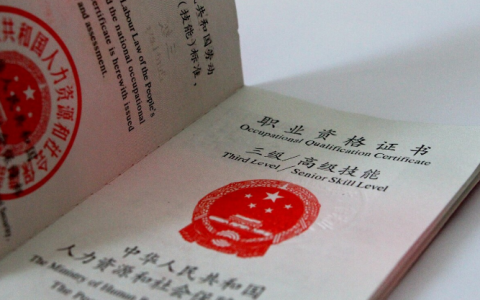 共和国劳动
(技能)标准,
Labour Law of the People's
d the national occupational
certificate is herewith issued
and assessment.
共和国人力资源和社会保
职业资格证书
Occupational Qualification Certificate
三级/高级技能
Third Level/Senior Skill Level
中华人民共和国
人力资源和社会保障
The Ministry of Human
The Peo